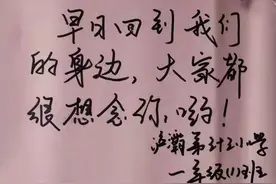 早日回到我们
的身边，大家都
很想念你哟！
浐灞第二十三小学
一年级(1)班